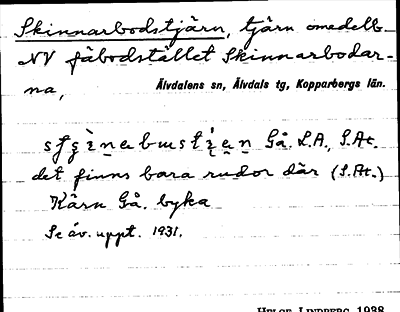 Skinnarbodstjärn, tjärn omedelb.
NV fäbodstället Skinnarbodar-
na, Älvdalens sn, Älvdals tg, Kopparbergs län.
Gå. L.A., S.At.
det finns bara rudor där (S.At.)
Kärn Gå. byka
Se äv. uppt. 1931.
HELGE LINDBERG 1938